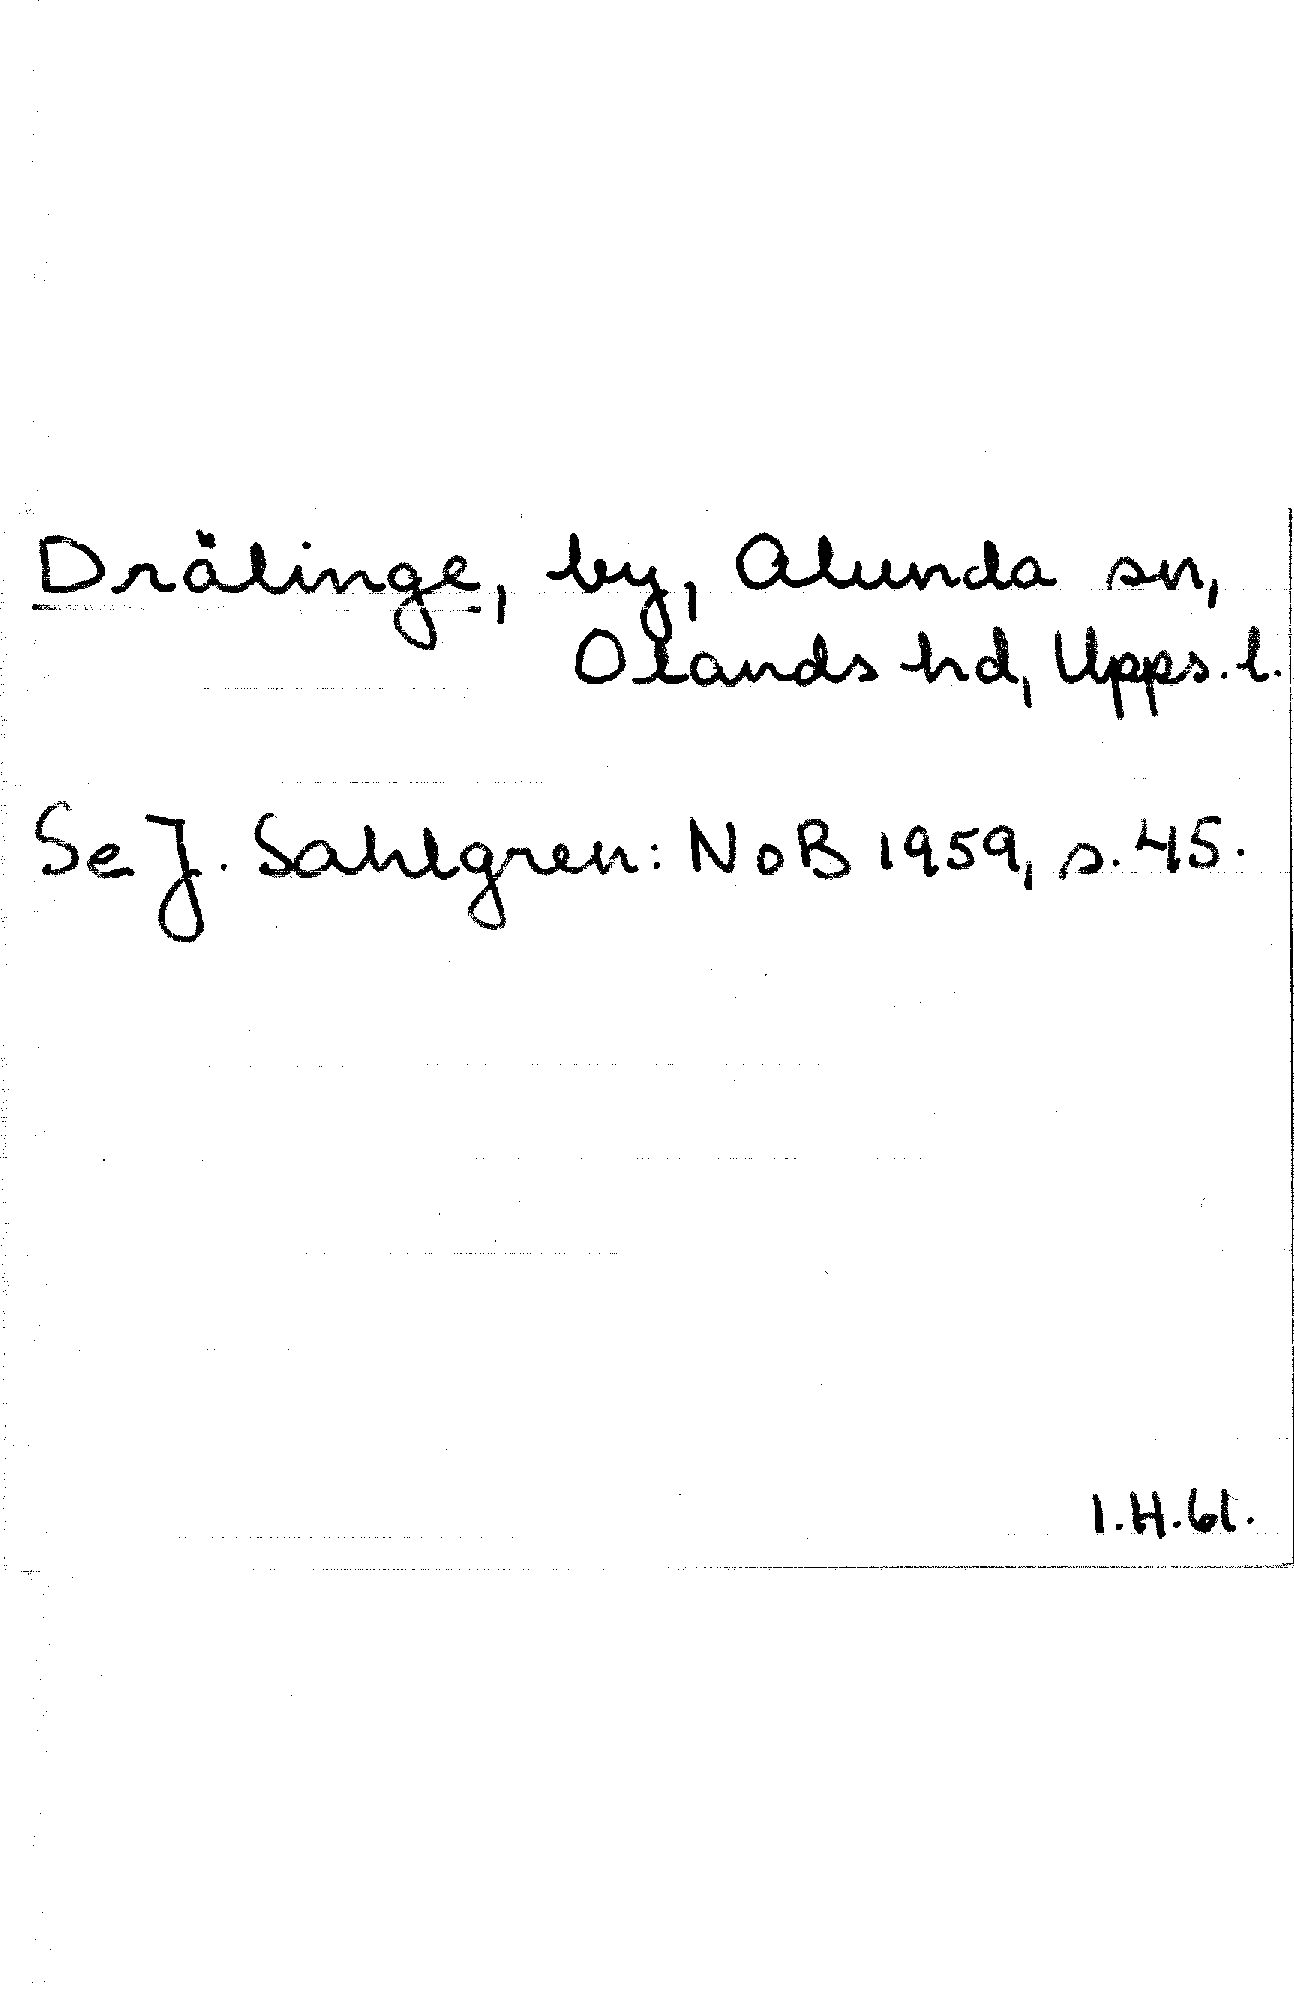 Drälinge, by, Alunda sn,
Olands hd, Upps. l.
Se J. Sahlgren: NoB 1959, s. 45.
I.H.61.